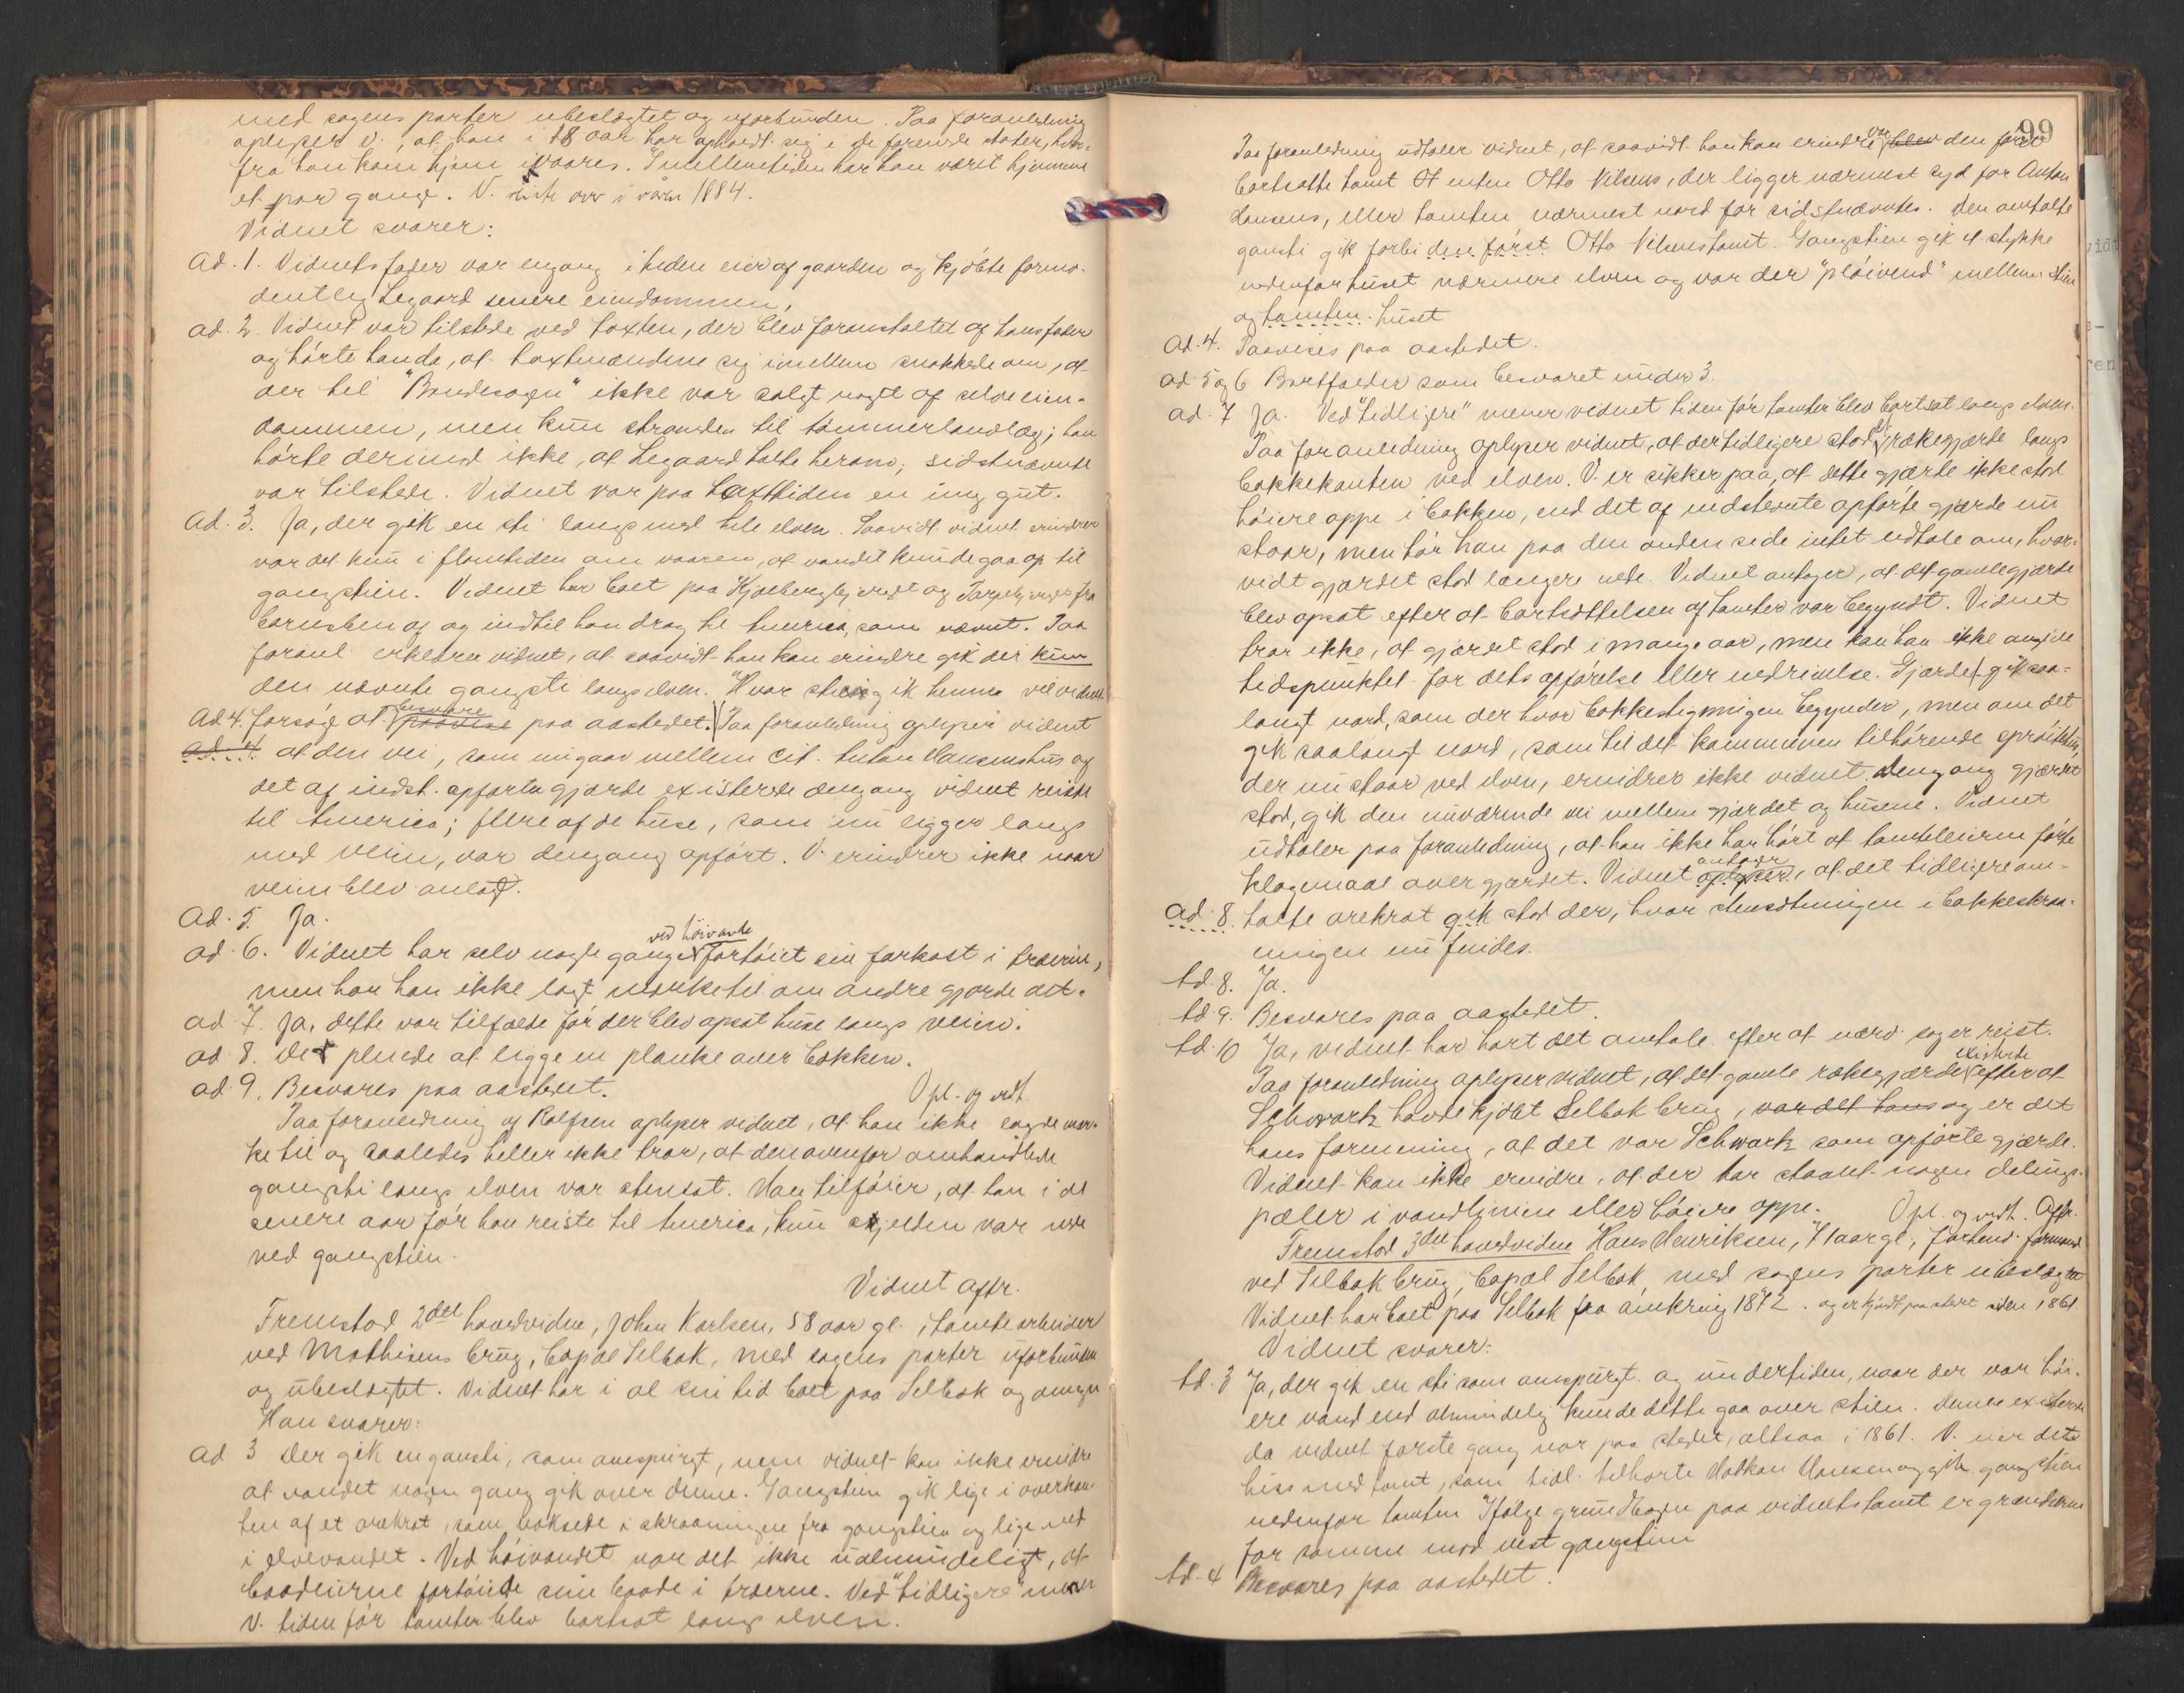 med sagens parter ubeslægtet og uforbunden. Paa foranledning
oplyser V., at han i 18 aar har opholdt sig i de forenede stater, hvor-
fra han kom hjem ivaares. I mellemtiden har han været hjemme
et par gange. V. reiste over i våren 1884.
Vidnet svarer:
Ad. 1. Vidnets fader var engang i tiden eier af gaarden og kjøbte formo-
dentlig Legaard senere eiendommen.
ad. 2. Vidnet var tilstede ved taxten, der blev foranstaltet af hans fader
og hørte handa, at taxtmændene sig imellem snakkede om, at
der til "Bondesagen" ikke var solgt noget af selve eien-
dommen, men kun stranden til tømmerlandlæg; han
hørte derimod ikke, at Legaard talte herom; sidstnævnte
var tilstede. Vidnet var paa taxttiden en ung gut.
ad. 3. Ja, der gik en sti langs med hele elven. Saavidt vidnet erindrer
var det kun i flomtiden om vaaren, at vandet kunde gaa op til
gangstien. Vidnet har boet paa Kjølbergbj og Torpebj fra
barnsben af og indtil han drog til America, som nævnt. Paa
foranl. erklærer vidnet, at saavidt han kan erindre gik der kun
den nævnte gangsti langs elven. Hvor stien gik henne vil vidnet
Ad 4. forsøge at besvare paavise paa aastedet. Paa foranledning oplyser vidnet
ad. 4. at den vei, som nu gaar mellem cit. Anton Hansens hus og
det af indst. opførte gjærde existerede dengang vidnet reiste
til America; flere af de huse, som nu ligger langs
med veien, var dengang opført. V. erindrer ikke naar
veien blev anlagt.
Ad. 5. Ja.
ved høivande
ad. 6. Vidnet har selv nogle gange fortøiet sin farkost i træerne,
men har han ikke lagt mærke til om andre gjorde det.
ad. 7. Ja, dette var tilfælde før der blev opsat huse langs veien.
ad. 8. Det pleiede at ligge en planke over bækken.
ad. 9. Besvares paa aastedet. Opl. og vedt.
Paa foranledning af Rolfsen oplyser vidnet, at han ikke lagde mær-
ke til og saaledes heller ikke tror, at den ovenfor omhandlede
gangsti langs elven var stensat. Han tilføier, at han i de
senere aar før han reiste til America, kun sjelden var nede
ved gangstien.
Vidnet aftr.
Fremstod 2det hovedvidne, Johan Karlsen, 58 aar gl., tomtearbeider
ved Mathisens brug, bopæl Selbak, med sagens parter uforbunden
og ubeslægtet. Vidnet har i al sin tid boet paa Selbak og omegn
Han svarer:
ad 3 Der gik en gansti, som omspurgt, men vidnet kan ikke erindre
at vandet nogen gang gik over denne. Gangstien gik lige i overkan-
ten af et orekrat, som voksede i skraaningen fra gangstien og lige ned
i elvevandet. Ved høivandet var det ikke ualmindeligt, at
baadeierne fortøiede sine baade i træerne. Ved "tidligere" mener
V. tiden før tomter blev bortsat langs elven.
99
Paa foranledning udtaler vidnet, at saavidt han kan erindre var blev den først
bortsatte tomt enten Otto Nilsens, der ligger nærmest syd for Anton
Hansens, eller tomten nærmest nord for sidstnævntes. Den omtalte
gansti gik forbi den først Otto Nilsens tomt. Gangstien gik et stykke
nedenfor huset nærmere elven og var der "pløivend" mellem stien
og tomten. huset
Ad. 4. Paavises paa aastedet.
ad. 5 og 6 Bortfalder som besvaret under 3.
ad. 7 Ja. Ved "tidligere" mener vidnet tiden før tomter blev bortsat langs elven.
Paa foranledning oplyser vidnet, at der tidligere stod et rækegjærde langs
bakkekanten ved elven. V. er sikker paa, at dette gjærde ikke stod
høiere oppe i bakken, end det af indstevnte opførte gjærde nu
staar, men tør han paa den anden side intet udtale om, hvor-
vidt gjærdet stod længere nede. Vidnet antager, at det gamle gjærde
blev opsat efter at bortsættelsen af tomter var begyndt. Vidnet
tror ikke, at gjærdet stod i mange aar, men kan han ikke angive
tidspunktet for dets opførelse eller nedrivelse. Gjærdet gik saa-
langt nord, som der hvor bakkestigningen begynder, men om det
gik saalangt nord, som til det kommunen tilhørende sprøitehus,
der nu staar ved elven, erindrer ikke vidnet. Dengang gjærdet
stod, gik den nuværende vei mellem gjærdet og husene. Vidnet
udtaler paa foranledning, at han ikke har hørt at tomteeierne førte
klagemaal over gjærdet. Vidnet antager oplyser, at det tidligere om-
ad. 8. talte orekrat gik stod der, hvor stensætningen i bakkeskraa-
ningen nu findes.
Ad. 8. Ja.
Ad. 9. Besvares paa aastedet.
Ad. 10 Ja, vidnet har hørt det omtale efter at nærv. sag er reist.
Paa foranledning oplyser vidnet, at det gamle rækegjærde existerede efter at
Schwartz havde kjøbt Selbak brug, var det hans og er det
hans formening, at det var Schwartz som opførte gjærdet.
Vidnet kan ikke erindre, at der har staaet nogen delings-
pæler i vandlinien eller høiere oppe. Opl. og vedt. Aftr.
Fremstod 3die hovedvidne Hans Henriksen, 71 aar gl., forhenv. formand
ved Selbak brug, bopæl Selbak, med sagens parter ubeslægtet
Vidnet har boet paa Selbak fra omkring 1872. og er kjendt paa stedet siden 1861.
Vidnet svarer:
Ad. 3 Ja, der gik en sti som omspurgt og undertiden, naar der var høi-
ere vand end almindelig kunde dette gaa over stien. Denne existerede
da vidnet første gang var paa stedet, altsaa i 1861. V. eier det
hus med tomt, som tidl. tilhørte Haakon Hansen og gik gangstien
nedenfor tomten. Ifølge grundbogen paa vidnets tomt er grændserne
for samme mod vest gangstien
Ad. 4 Besvares paa aastedet.